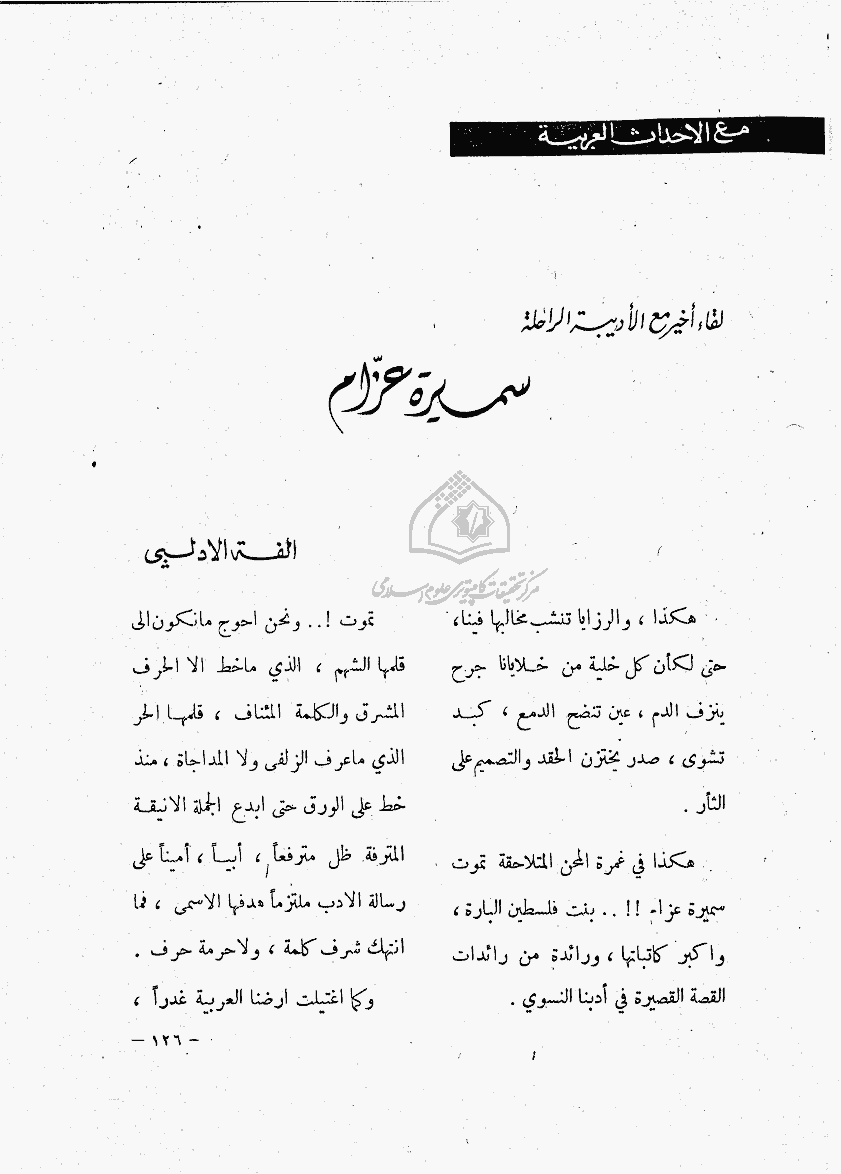 مع الاحداث العربية
لقاء أخير مع الأديبة الراحلة
سميرة عزّام
الفة الادلبي
مركز تحقيقات كامپيوتری علوم اسلامی
هكذا ، والرزايا تنشب مخالبها فينا،
حتى لكأن كل خلية من خلايانا جرح
ينزف الدم ، عين تنضح الدمع ، كبد
تشوى ، صدر يختزن الحقد والتصميم على
الثأر .
هكذا في غمرة المحن المتلاحقة تموت
سميرة عزام !! .. بنت فلسطين البارة ،
واكبر كاتباتها ، ورائدة من رائدات
القصة القصيرة في أدبنا النسوي .
تموت !.. ونحن احوج مانكون الى
قلمها الشهم ، الذي ماخط الا الحرف
المشرق والكلمة المئناف ، قلمها الحر
الذي ماعرف الزلفى ولا المداجاة ، منذ
خط على الورق حتى ابدع الجملة الانيقة
المترفة ظل مترفعاً ، أبياً ، أميناً على
رسالة الادب ملتزماً هدفها الاسمى ، فما
انتهك شرف كلمة ، ولاحرمة حرف .
وكما اغتيلت ارضنا العربية غدراً ،
— ١٢٦ —